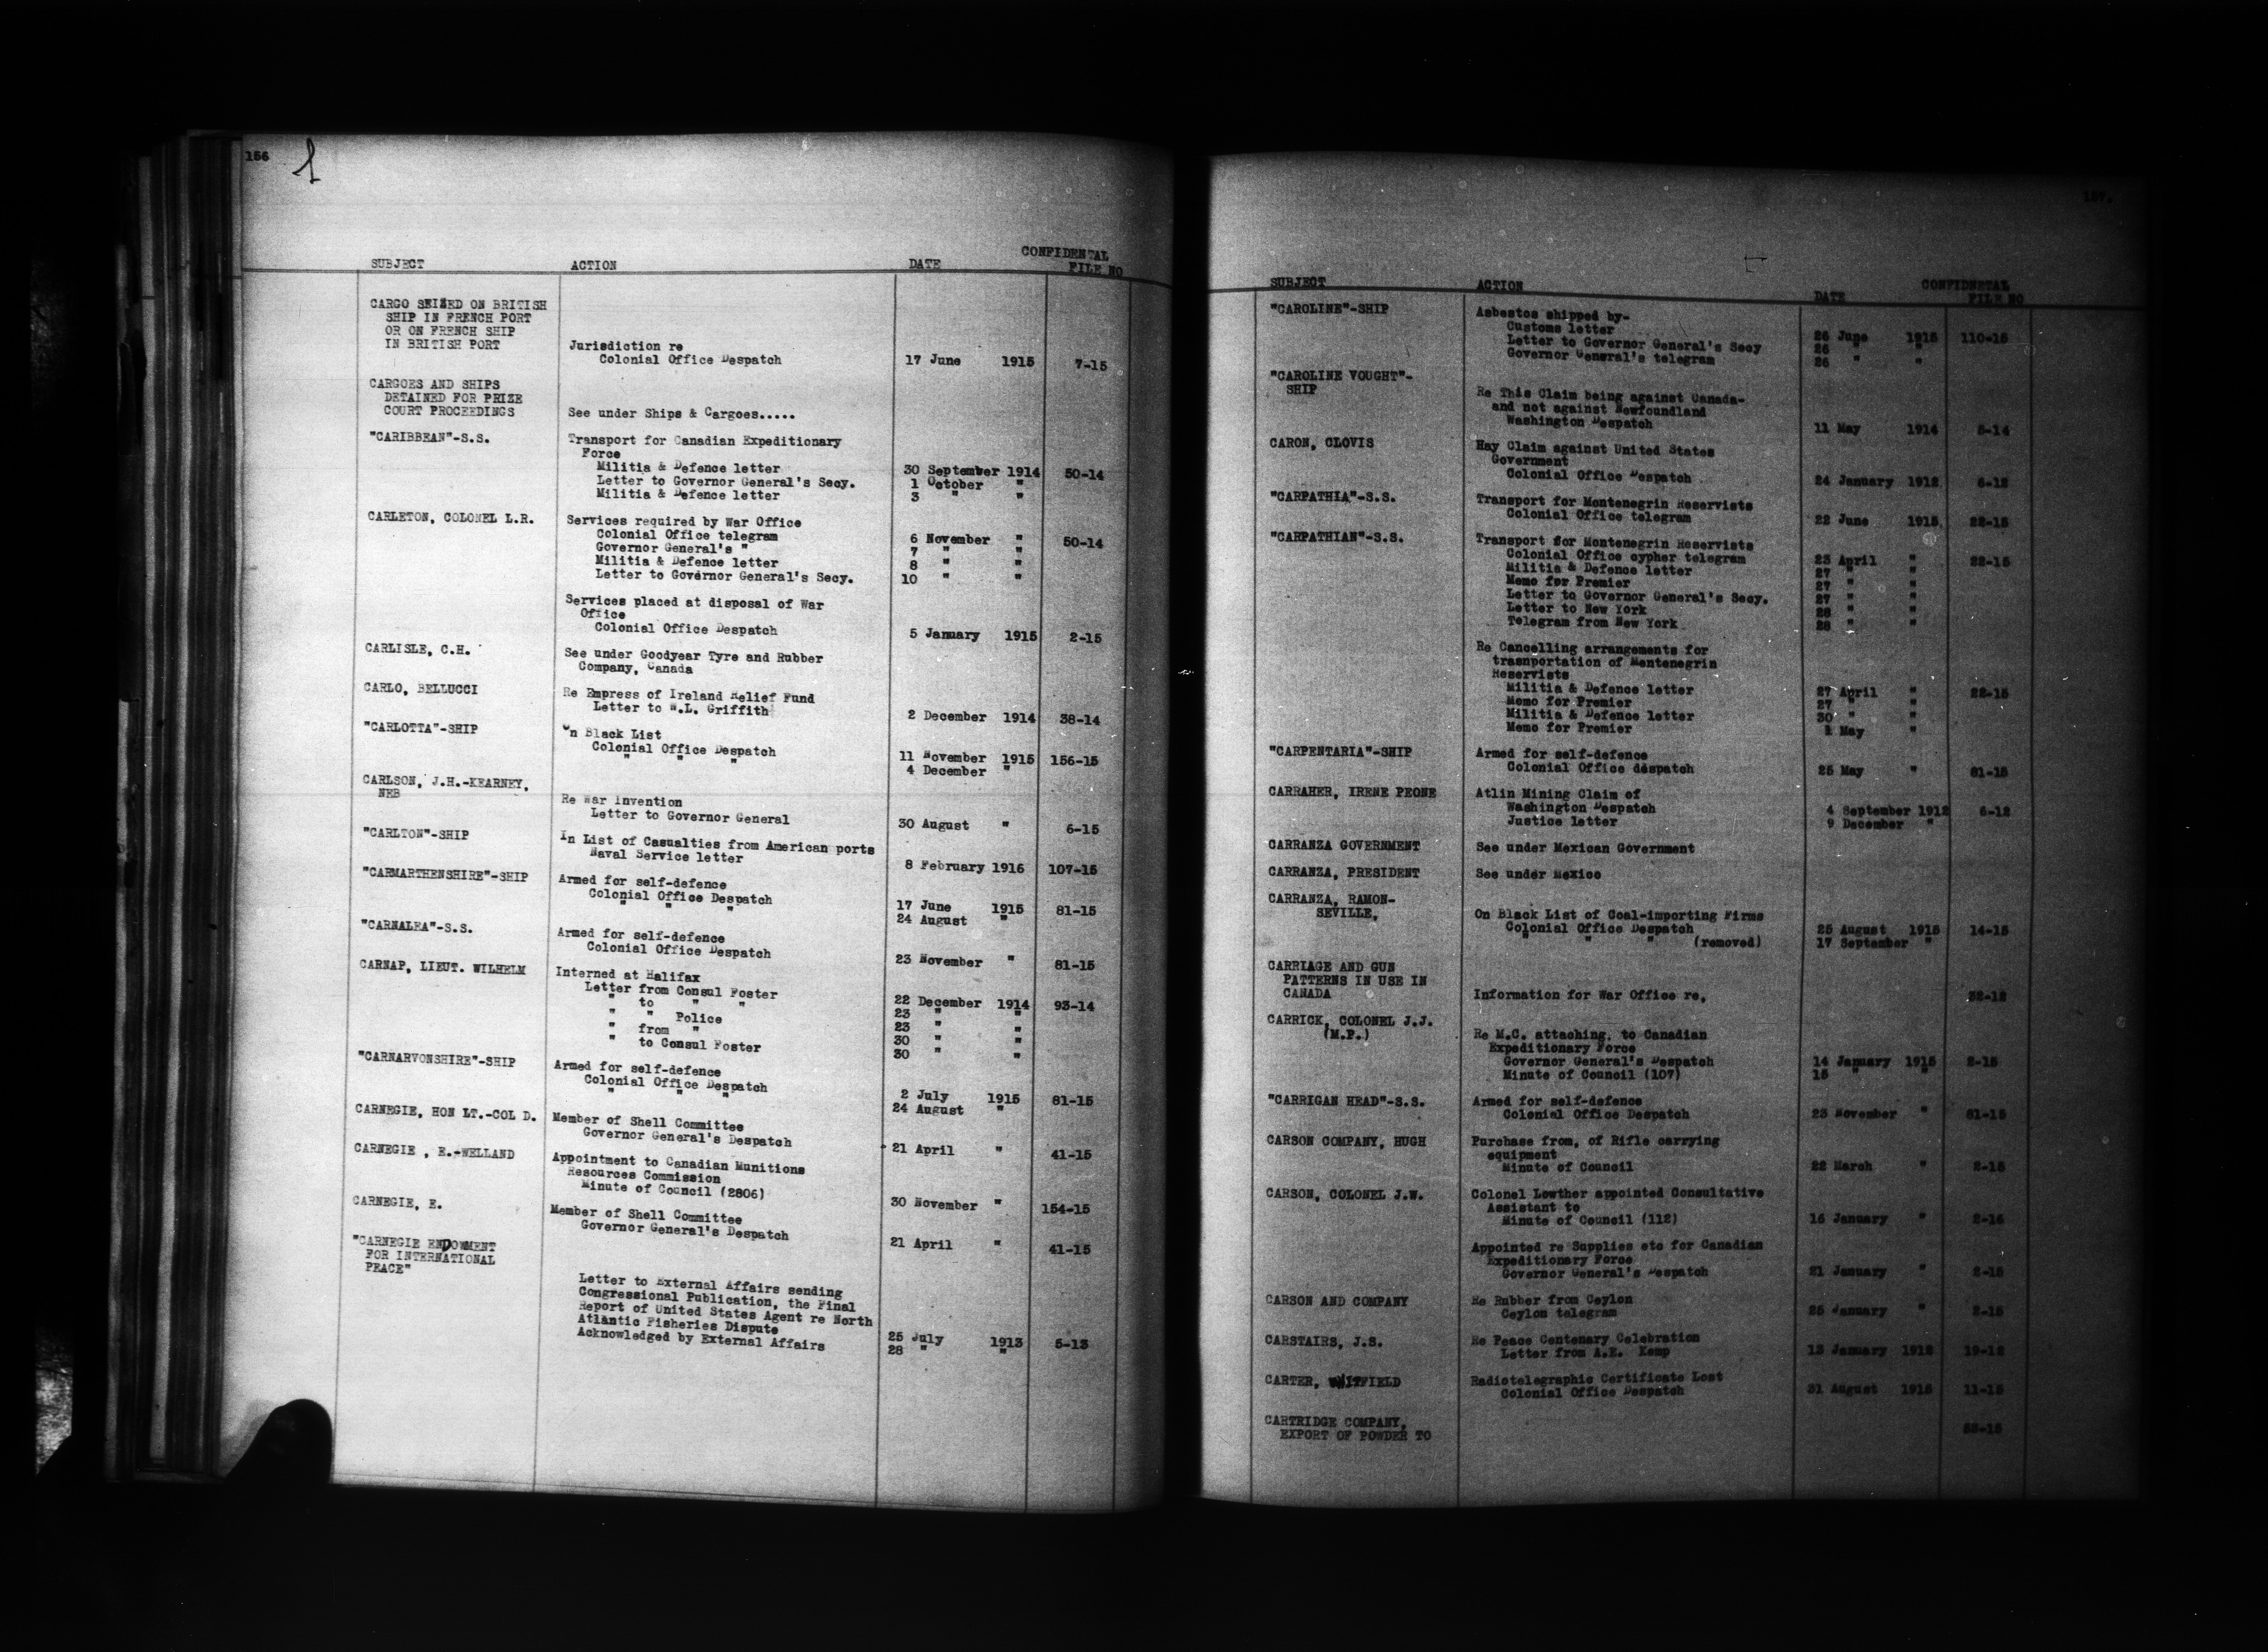 156
SUBJECT ACTION DATE CONFIDENTAL FILE NO
CARGO SEIZED ON BRITISH
SHIP IN FRENCH PORT
OR ON FRENCH SHIP
IN BRITISH PORT Jurisdiction re
Colonial Office Despatch 17 June 1915 7-15
CARGOES AND SHIPS
DETAINED FOR PRIZE
COURT PROCEEDINGS See under Ships & Cargoes.....
"CARIBBEAN"-S.S. Transport for Canadian Expeditionary
Force
Militia & Defence letter 30 September 1914 50-14
Letter to Governor General's Secy. 1 October "
Militia & Defence letter 3 " "
CARLETON, COLONEL L.R. Services required by War Office
Colonial Office telegram 6 November " 50-14
Governor General's " 7 " "
Militia & Defence letter 8 " "
Letter to Governor General's Secy. 10 " "
Services placed at disposal of War
Office
Colonial Office Despatch 5 January 1915 2-15
CARLISLE, C.H. See under Goodyear Tyre and Rubber
Company, Canada
CARLO, BELLUCCI Re Empress of Ireland Relief Fund
Letter to W.L. Griffith 2 December 1914 38-14
"CARLOTTA"-SHIP On Black List
Colonial Office Despatch 11 November 1915 156-15
" " " 4 December "
CARLSON, J.H.-KEARNEY,
NEB Re War Invention
Letter to Governor General 30 August " 6-15
"CARLTON"-SHIP In List of Casualties from American ports
Naval Service letter 8 February 1916 107-15
"CARMARTHENSHIRE"-SHIP Armed for self-defence
Colonial Office Despatch 17 June 1915 81-15
" " " 24 August "
"CARNALEA"-S.S. Armed for self-defence
Colonial Office Despatch 23 November " 81-15
CARNAP, LIEUT. WILHELM Interned at Halifax
Letter from Consul Foster 22 December 1914 93-14
" to " " 23 " "
" " Police 23 " "
" from " 30 " "
" to Consul Foster 30 " "
"CARNARVONSHIRE"-SHIP Armed for self-defence
Colonial Office Despatch 2 July 1915 81-15
" " " 24 August "
CARNEGIE, HON LT.-COL D. Member of Shell Committee
Governor General's Despatch 21 April " 41-15
CARNEGIE , E.-WELLAND Appointment to Canadian Munitions
Resources Commission
Minute of Council (2806) 30 November " 154-15
CARNEGIE, E. Member of Shell Committee
Governor General's Despatch 21 April " 41-15
"CARNEGIE ENDOWMENT
FOR INTERNATIONAL
PEACE"
Letter to External Affairs sending
Congressional Publication, the Final
Report of United States Agent re North
Atlantic Fisheries Dispute 25 July 1913 5-13
Acknowledged by External Affairs 28 " "
157.
SUBJECT ACTION DATE CONFIDNETAL FILE NO
"CAROLINE"-SHIP Asbestos shipped by-
Customs letter 26 June 1915 110-15
Letter to Governor General's Secy 26 " "
Governor General's telegram 26 " "
"CAROLINE VOUGHT"-
SHIP Re This Claim being against Canada-
and not against Newfoundland
Washington Despatch 11 May 1914 5-14
CARON, CLOVIS Hay Claim against United States
Government
Colonial Office Despatch 24 January 1912 6-12
"CARPATHIA"-S.S. Transport for Montenegrin Reservists
Colonial Office telegram 22 June 1915 22-15
"CARPATHIAN"-S.S. Transport for Montenegrin Reservists
Colonial Office cypher telegram 23 April " 22-15
Militia & Defence letter 27 " "
Memo for Premier 27 " "
Letter to Governor General's Secy. 27 " "
Letter to New York 28 " "
Telegram from New York 28 " "
Re Cancelling arrangements for
trasnportation of Montenegrin
Reservists
Militia & Defence letter 27 April " 22-15
Memo for Premier 27 " "
Militia & Defence letter 30 " "
Memo for Premier May "
"CARPENTARIA"-SHIP Armed for self-defence
Colonial Office despatch 25 May " 81-15
CARRAHER, IRENE PEONE Atlin Mining Claim of
Washington Despatch 4 September 1912 6-12
Justice letter 9 December "
CARRANZA GOVERNMENT See under Mexican Government
CARRANZA, PRESIDENT See under Mexico
CARRANZA, RAMON-
SEVILLE, On Black List of Coal-importing Firms
Colonial Office Despatch 25 August 1915 14-15
" " " (removed) 17 September "
CARRIAGE AND GUN
PATTERNS IN USE IN
CANADA Information for War Office re, 32-12
CARRICK, COLONEL J.J.
(M.P.) Re M.C. attaching, to Canadian
Expeditionary Force
Governor General's Despatch 14 January 1915 2-15
Minute of Council (107) 15 " "
"CARRIGAN HEAD"-S.S. Armed for self-defence
Colonial Office Despatch 23 November " 81-15
CARSON COMPANY, HUGH Purchase from, of Rifle carrying
equipment
Minute of Council 22 March " 2-15
CARSON, COLONEL J.W. Colonel Lowther appointed Consultative
Assistant to
Minute of Council (112) 16 January " 2-15
Appointed re Supplies etc for Canadian
Expeditionary Force
Governor General's Despatch 21 January " 2-15
CARSON AND COMPANY Re Rubber from Ceylon
Ceylon telegram 25 January " 2-15
CARSTAIRS, J.S. Re Peace Centenary Celebration
Letter from A.E. Kemp 13 January 1912 19-12
CARTER, WHITFIELD Radiotelegraphic Certificate Lost
Colonial Office Despatch 31 August 1915 11-15
CARTRIDGE COMPANY,
EXPORT OF POWDER TO